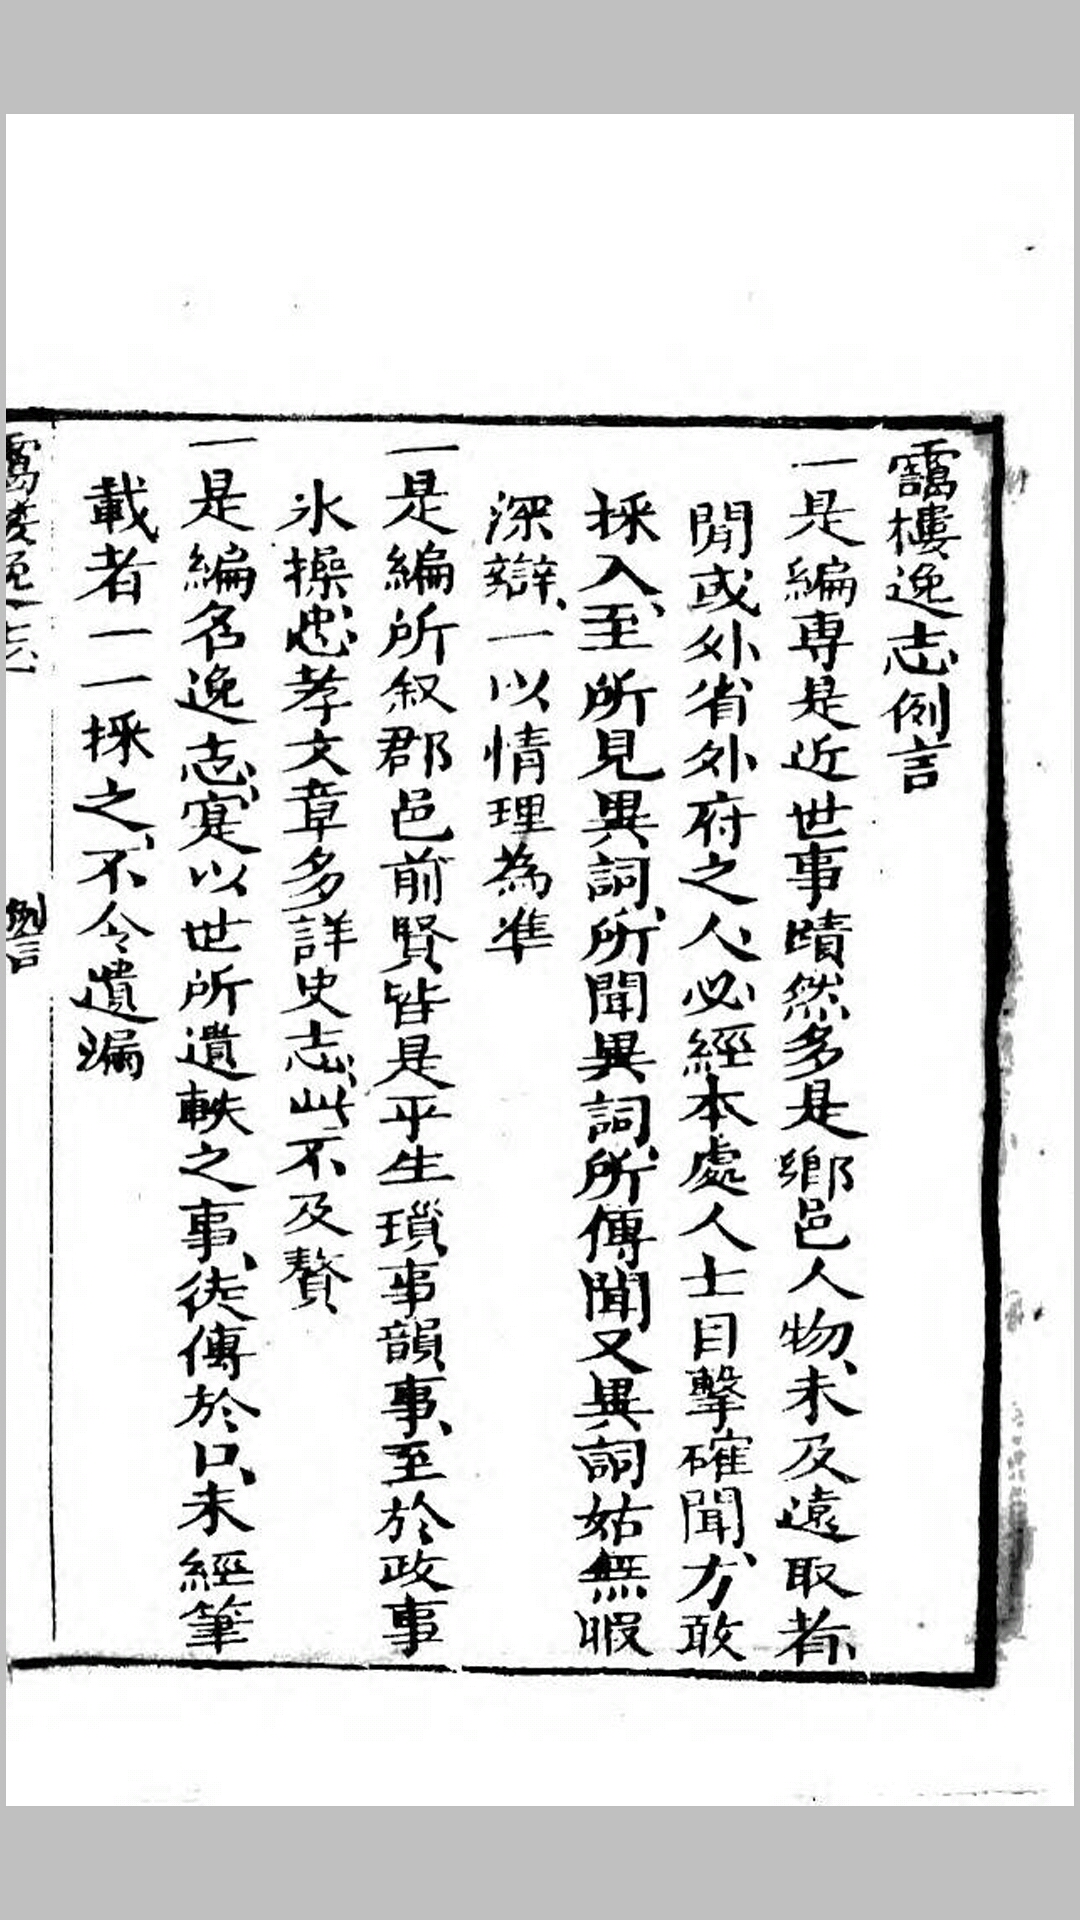 靄樓逸志例言
一是編専是近世事蹟然多是鄉邑人物、未及遠取者、
間或外省外府之人、必經本處人士目擊確聞、方敢
採入、至所見異詞、所聞異詞、所傳聞又異詞姑無暇
深辯、一以情理為準
一是編所叙郡邑前賢皆是平生瑣事韻事、至於政事
氷操忠孝文章多詳史志、此不及贅
一是編名逸志、寔以世所遺軼之事、徒傳於口、未經筆
載者一一採之、不令遺漏
靄樓逸志
例言